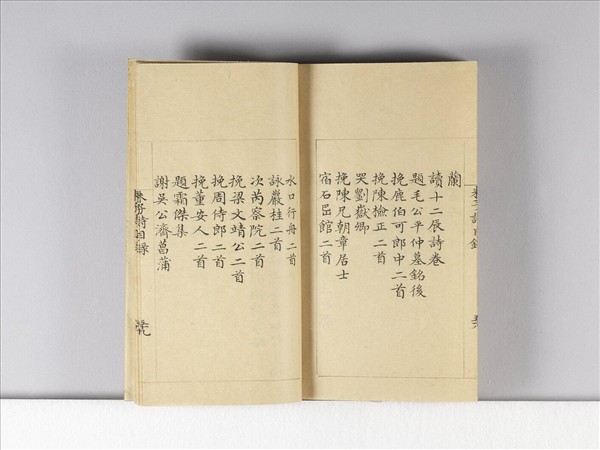 蘭
讀十二辰詩卷
題毛公平仲墓銘後
挽鹿伯可郎中二首
挽陳檢正二首
哭劉嶽卿
挽陳尺朝章居士
宿石𡵺館二首
水口行舟二首
詠巖桂二首
次芮察院二首
挽梁文靖公二首
挽周侍郎二首
挽董安人二首
題霜傑集
謝吳公濟菖蒲